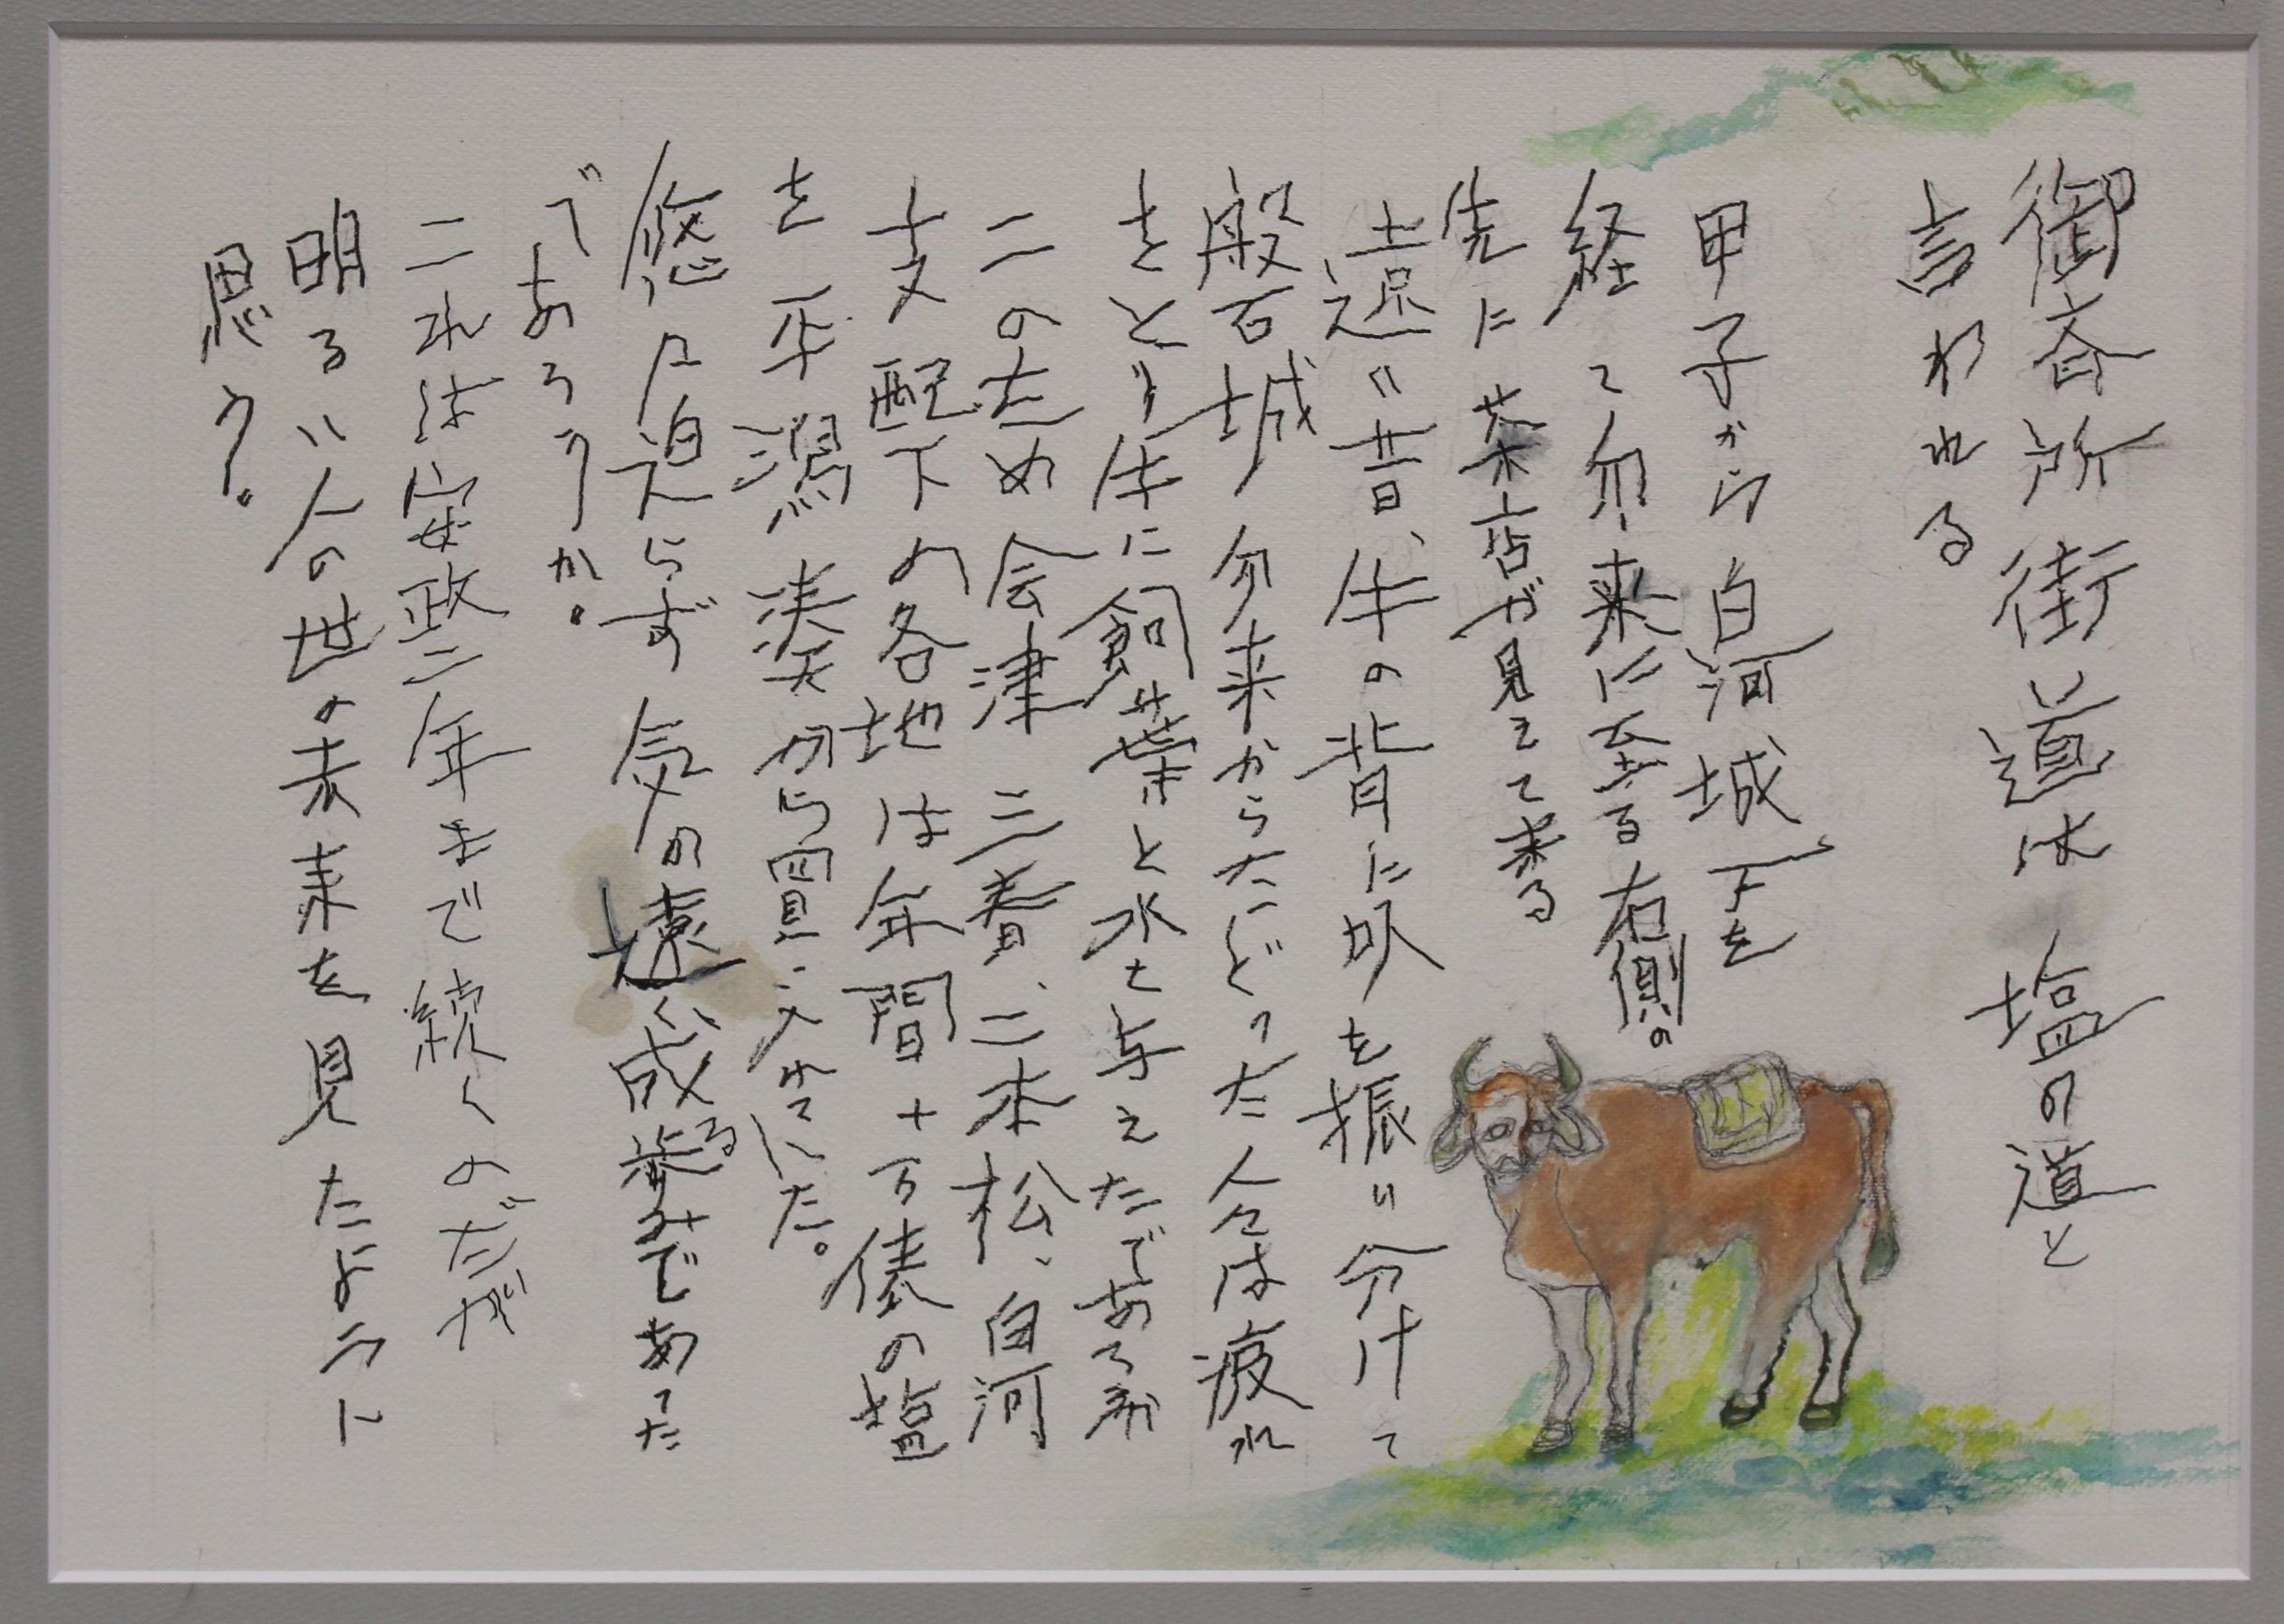 御斎所街道は塩の道と
言われる
甲子から白河城下を
経て勿来に至る右側の
先に茶店が見えて来る
遠い昔、牛の背に叺を振り分けて
般石城勿来からたどった人々は疲れ
をとり牛に飼葉と水を与えたであろが
このため会津 三春、二本松、白河
支配下の各地は年間十万俵の塩
を平潟湊から買い入れていた。
悠々迫らず気の遠く成る歩みであった
であろうか。
これは安政二年まで続くのだが
明るい人の世の未来を見たようニト
思う。